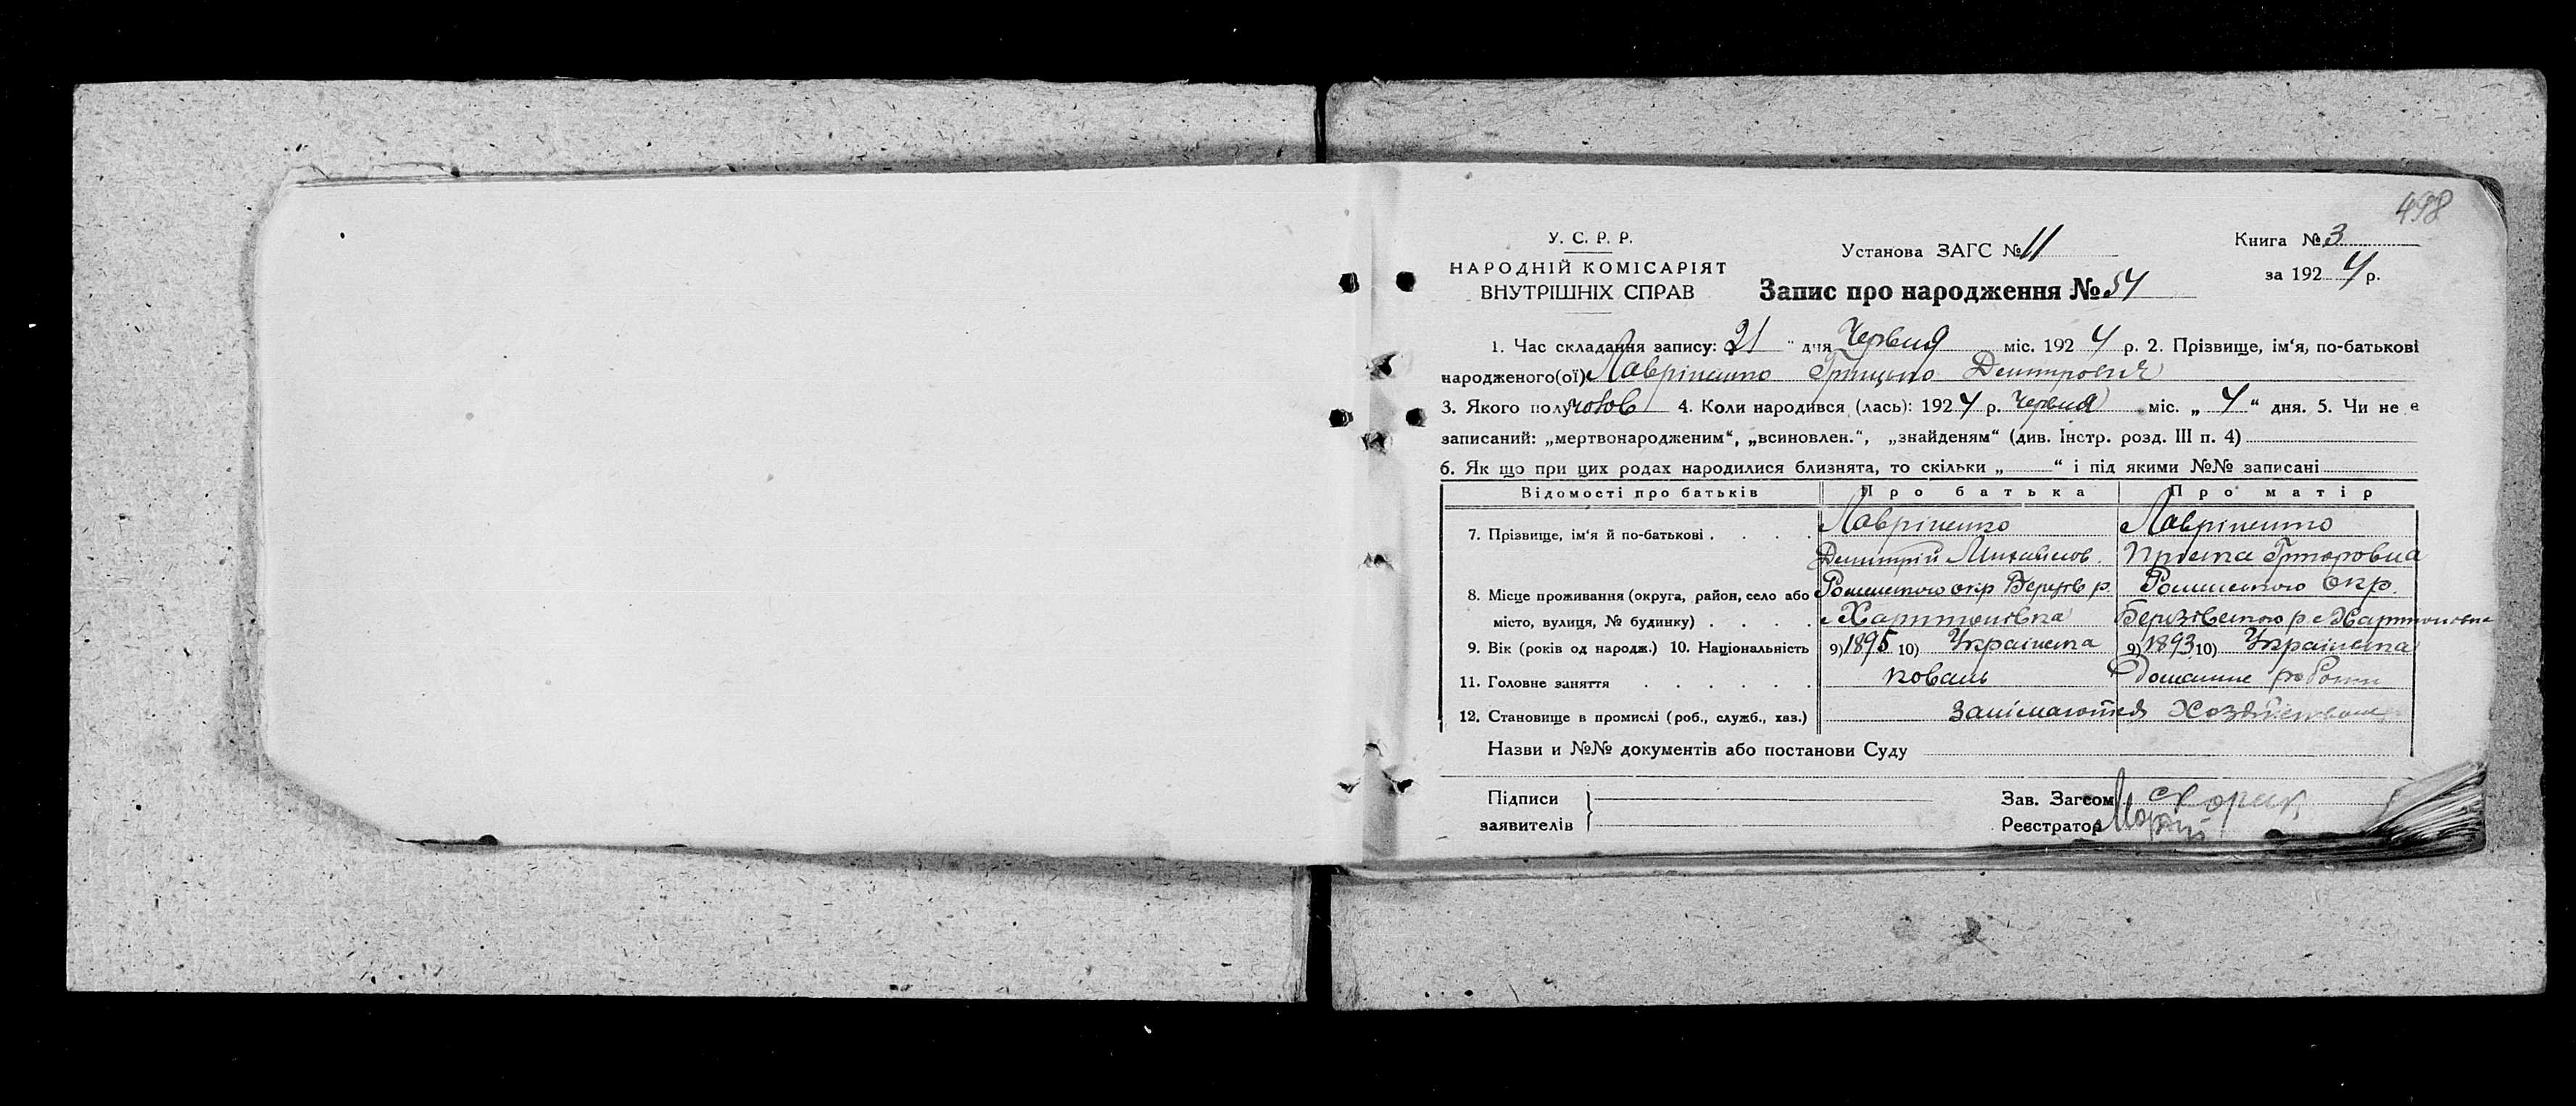 498
У. С. Р. Р.
НАРОДНІЙ КОМІСАРІЯТ
ВНУТРІШНІХ СПРАВ
Установа ЗАГС № 11
Книга № 3
за 1924 р.
Запис про народження № 54
1. Час складання запису: 21 " дня Червня міс. 1924 р. 2. Прізвище, ім'я, по-батькові
народженого(ої) Лавріненко Грицько Дмитрович
3. Якого полу чолов 4. Коли народився (лась): 1924 р. Червня міс. „ 4 " дня. 5. Чи не є
записаний: „мертвонародженим", „всиновлен.", „знайденям" (див. Інстр. розд. III п. 4)
6. Як що при цих родах народилися близнята, то скільки „ " і під якими №№ записані
Відомості про батьків Про батька Про матір
7. Прізвище, ім'я й по-батькові Лавріненко Лавріненко
Дмитрій Михайлов. Григоровна
8. Місце проживання (округа, район, село або Роменського окр р. Роменського Окр.
місто, вулиця, № будинку) Хартонівка р с
9. Вік (років од народж.) 10. Національність 9) 1895 10) Українська 9) 1893 10) Українська
11. Головне заняття коваль Домашне роботи
12. Становище в промислі (роб., служб., хаз.) Занімаются
Назви и №№ документів або постанови Суду
Підписи
заявителів
Зав. Загсом
Реєстратор